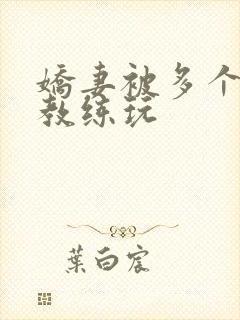 娇妻被多个
教练玩
葉白宸